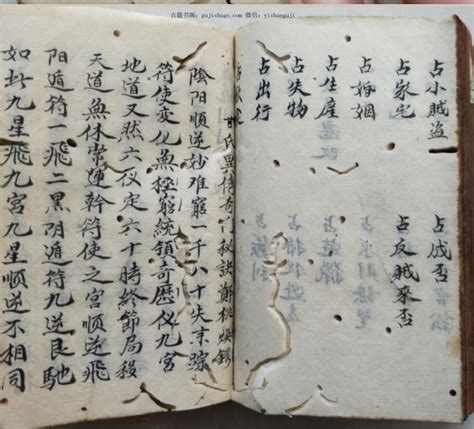 古籍书阁：gujishuge.com 微信：yishanguji
占小賊盜
占成否
占家宅
占反賊來否
占婚姻
占生産
占失物
占出行
里傳奇門秘訣
陰阳順逆妙难窮一千八十失踪
符使变化無窮統領奇歷仪九宮
地道又然六仪定六十時終節局移
天道無休常運幹符使之宮順逆飛
阳遁符一飛二黑阴遁符九逆艮馳
如此九星飛九宮九星順逆不相同